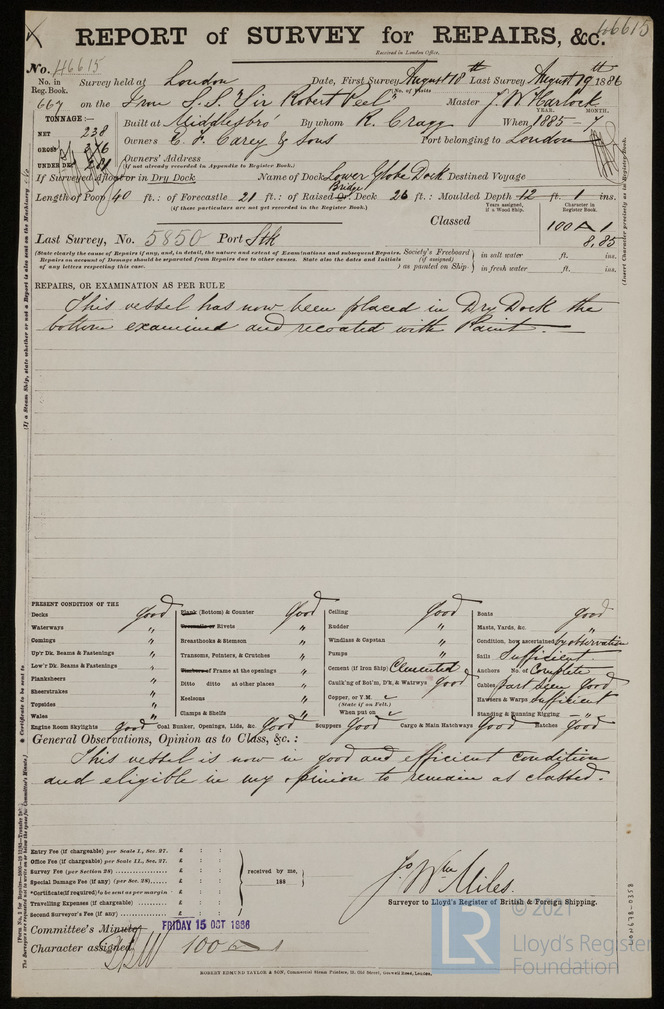 46615
REPORT of SURVEY for REPAIRS, &c.
Received in London Office,
No. 46615
No. in Reg. Book. Survey held at London Date, First Survey August 18th Last Survey August 19th 1886
No. of Visits
667 on the Iron S.S. "Sir Robert Peel" Master J. W. Harlock
TONNAGE:— Built at Middlesbro' By whom R. Cragg When 1885 - 7
YEAR. MONTH.
NET 238
GROSS 376 Owners E. F. Carey & Sons Port belonging to London
UNDER DK 281 Owners' Address
(if not already recorded in Appendix to Register Book.)
If Surveyed Afloat or in Dry Dock Name of Dock Lower Globe Dock Destined Voyage
Length of Poop 40 ft.: of Forecastle 21 ft.: of Raised Qr. Bridge Deck 26 ft.: Moulded Depth 12 ft. 1 ins.
(if these particulars are not yet recorded in the Register Book.)
Years assigned, if a Wood Ship. Character in Register Book.
Classed 100 A 1
8,85
Last Survey, No. 5850 Port Stk
(State clearly the cause of Repairs if any, and, in detail, the nature and extent of Examinations and subsequent Repairs.
Repairs on account of Damage should be separated from Repairs due to other causes. State also the dates and Initials
of any letters respecting this case.)
Society's Freeboard (if assigned) as painted on Ship in salt water ft. ins.
in fresh water ft. ins.
REPAIRS, OR EXAMINATION AS PER RULE
This vessel has now been placed in Dry Dock the
bottom examined and recoated with Paint.
PRESENT CONDITION OF THE
Decks good
Waterways "
Comings "
Up'r Dk. Beams & Fastenings "
Low'r Dk. Beams & Fastenings "
Planksheers "
Sheerstrakes "
Topsides "
Wales "
Plank (Bottom) & Counter good
Treenails or Rivets "
Breasthooks & Stemson "
Transoms, Pointers, & Crutches "
Timbers or Frame at the openings "
Ditto ditto at other places "
Keelsons "
Clamps & Shelfs "
Ceiling good
Rudder "
Windlass & Capstan "
Pumps "
Cement (if Iron Ship) Cemented
Caulk'ng of Bot'm, D'k, & Watrwys good
Copper, or Y.M.
(State if on Felt.)
When put on
Boats good
Masts, Yards, &c. "
Condition, how ascertained by observation
Sails Sufficient
Anchors No. of Complete
Cables part seen good
Hawsers & Warps sufficient
Standing & Running Rigging "
Engine Room Skylights good Coal Bunker, Openings, Lids, &c. good Scuppers good Cargo & Main Hatchways good Hatches good
General Observations, Opinion as to Class, &c.:
This vessel is now in good and efficient condition
and eligible in my opinion to remain as classed.
Entry Fee (if chargeable) per Scale I., Sec. 27. £ : :
Office Fee (if chargeable) per Scale II., Sec. 27. £ : :
Survey Fee (per Section 28) £ : :
Special Damage Fee (if any) (per Sec. 28) £ : :
*Certificate (if required) to be sent as per margin £ : :
Travelling Expenses (if chargeable) £ : :
Second Surveyor's Fee (if any) £ : :
received by me,
188
Jo Wm Miles.
Surveyor to Lloyd's Register of British & Foreign Shipping.
Committee's Minute FRIDAY 15 OCT 1886
Character assigned 100 A 1
ROBERT EDMUND TAYLOR & SON, Commercial Steam Printers, 19, Old Street, Goswell Road, London.
(If a Steam Ship, state whether or not a Report is also sent on the Machinery
(Insert Character precisely as in Register Book.)
* Certificate to be sent to
LON698-0353
LR
© 2021
Lloyd's Register
Foundation